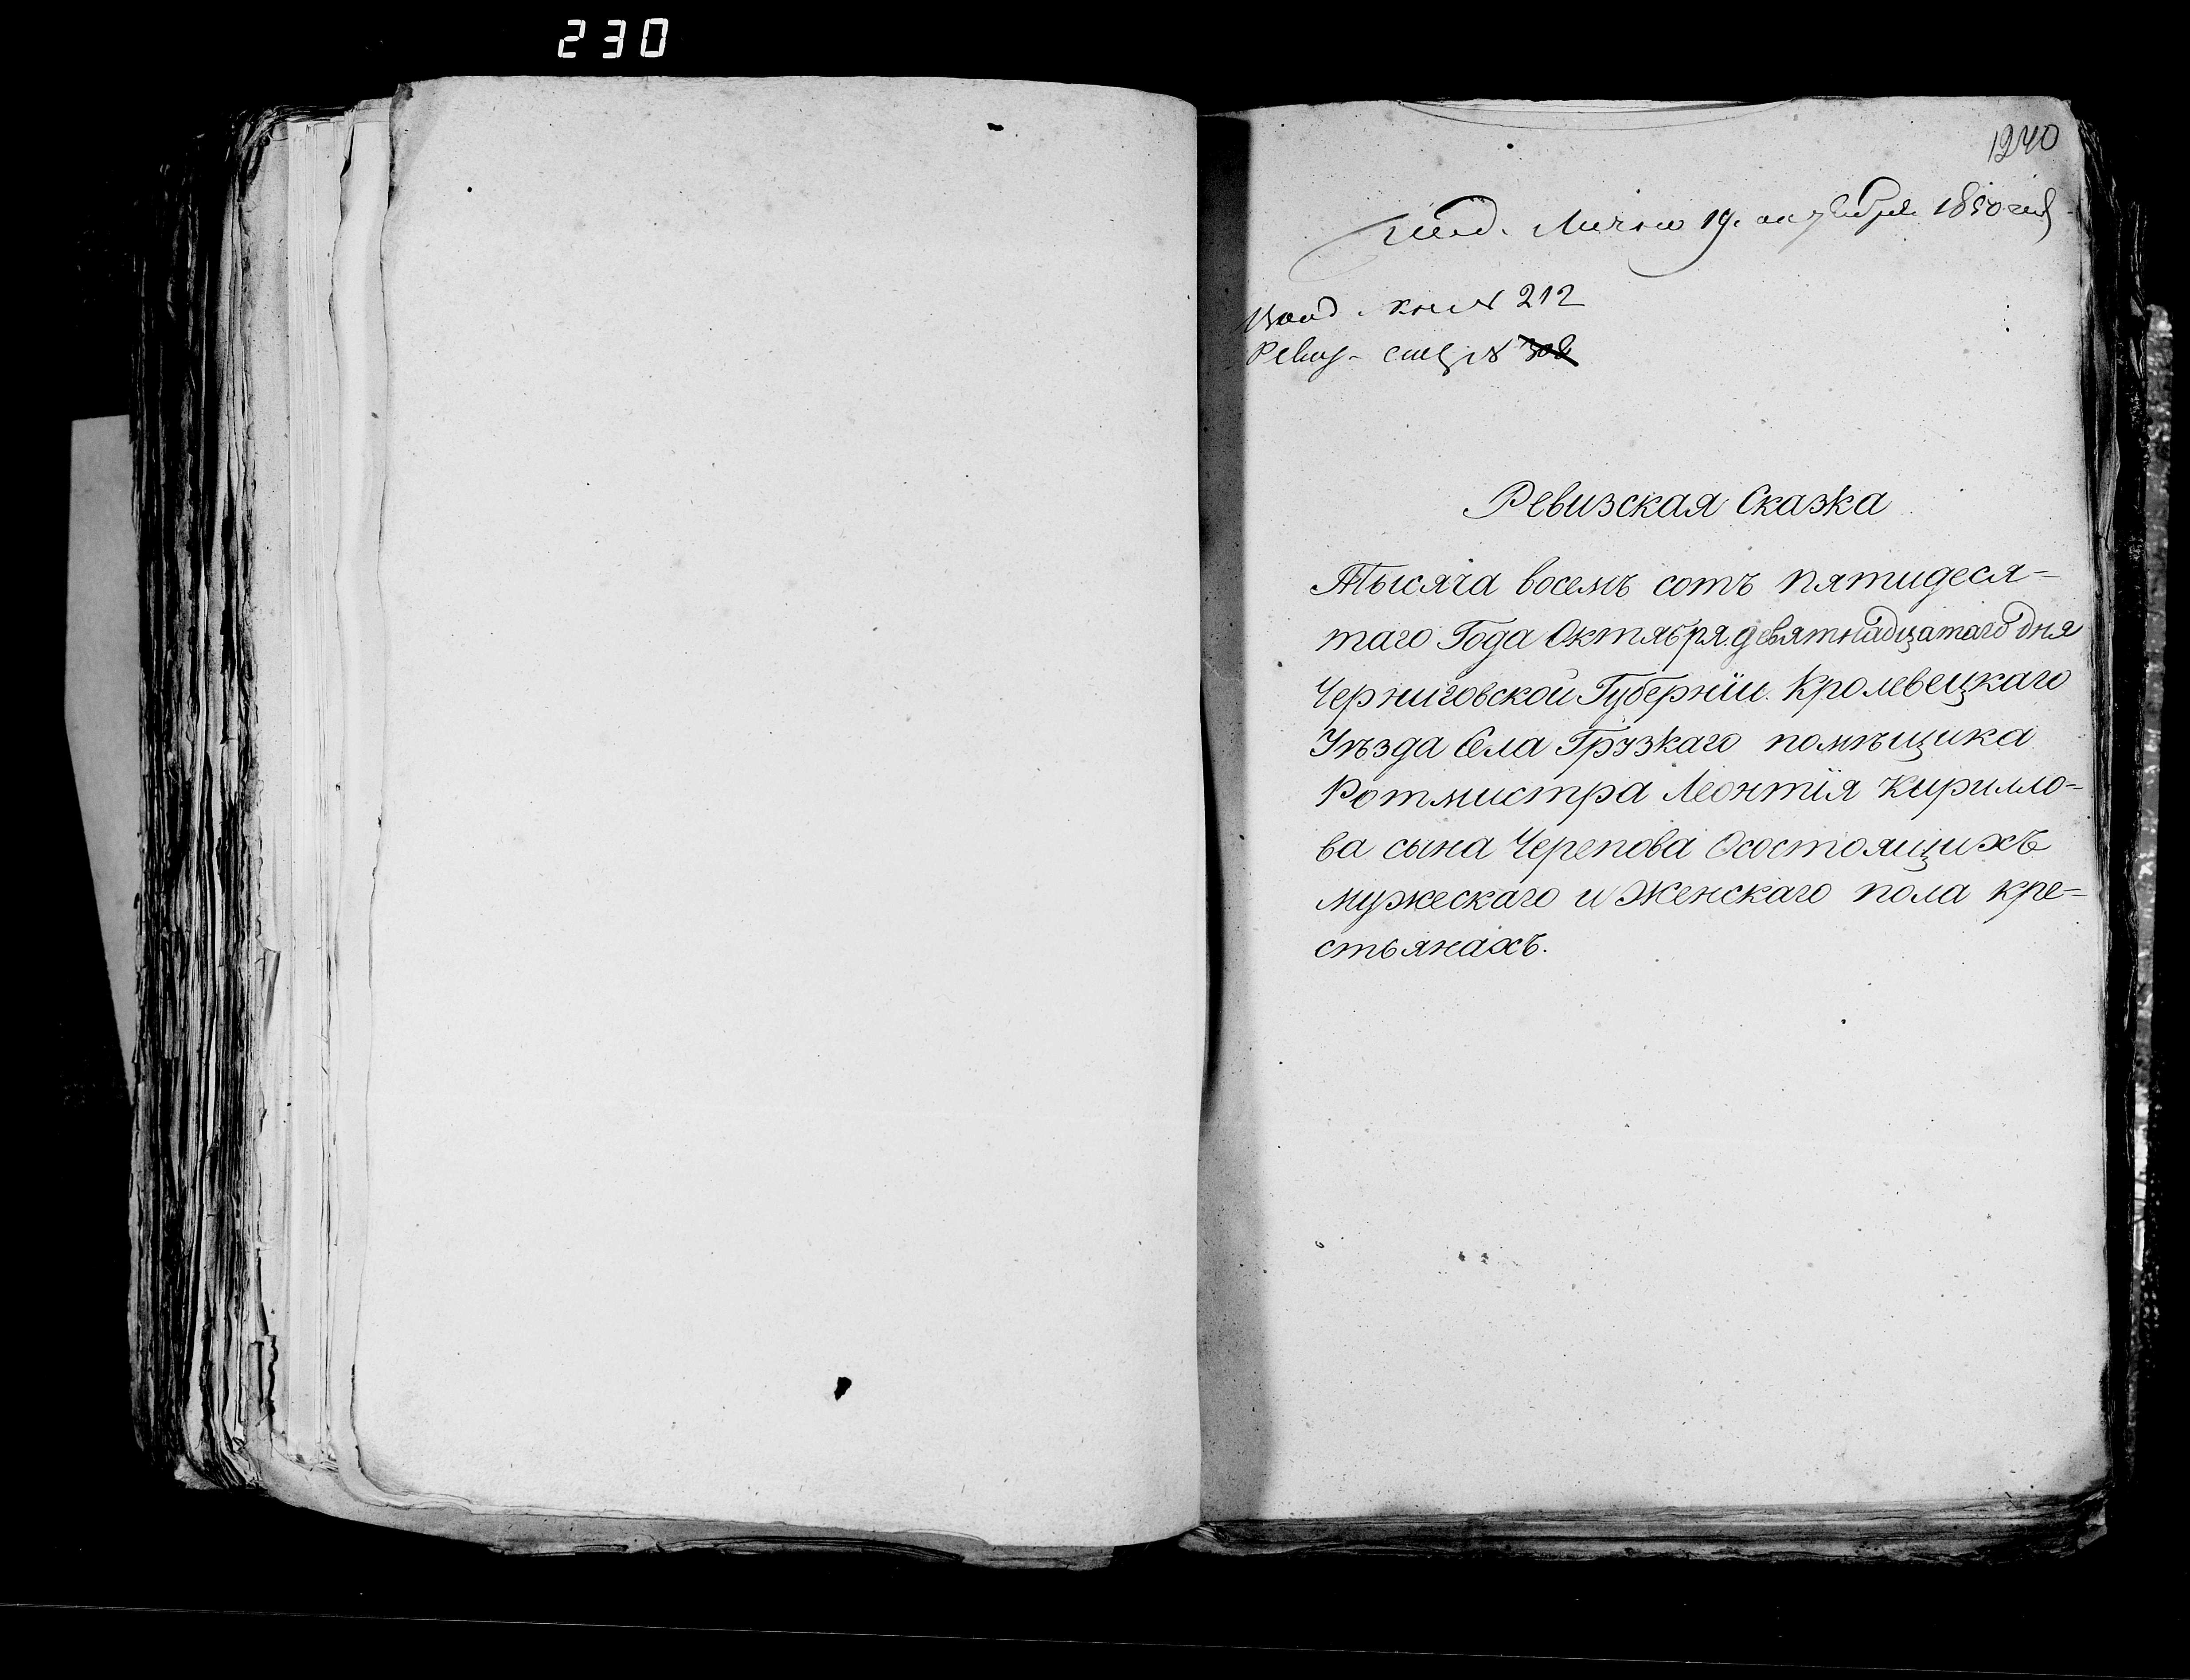 230
1240
Под. Лично 19. октября 1850 года
Вход. кни № 212
Ревиз- № 308
Ревизская Сказка
Тысяча восемъ сотъ пятидеся-
таго Года Октября девятнадцатаго дня
Черниговской Губернiи. Кролевецкаго
Уѣзда Села Грузкаго помѣщика
Ротмистра Леонтiя Кирилло-
ва сына Черепова Осостоящихъ
мужескаго и Женскаго пола кре-
стьянахъ.